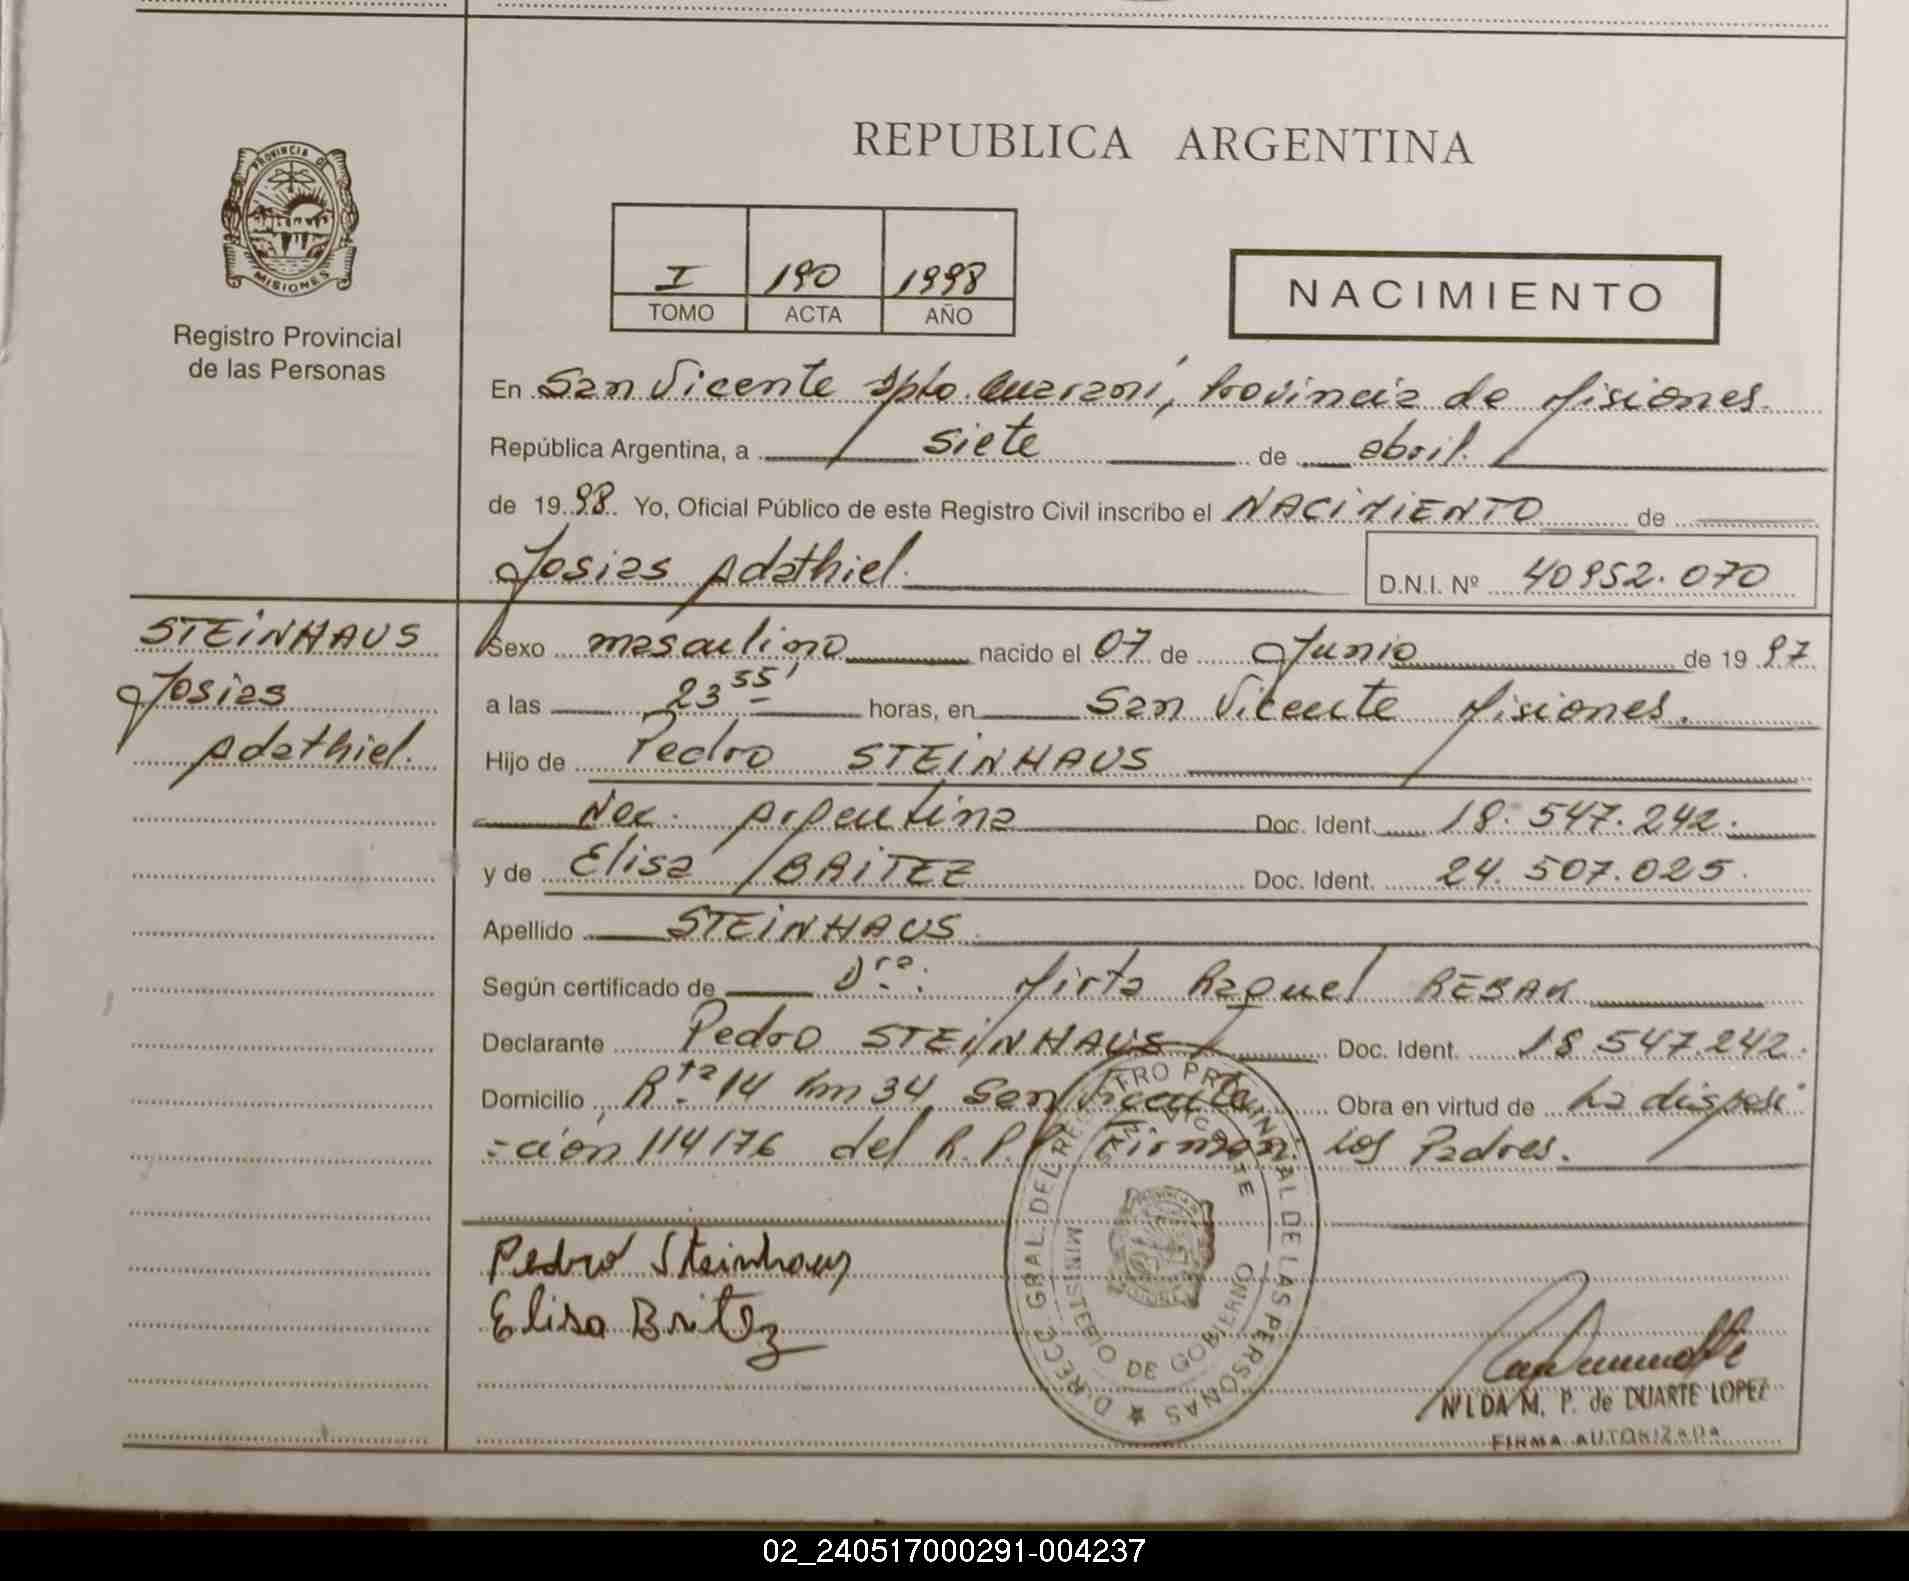 REPUBLICA ARGENTINA
PROVINCIA DE
MISIONES
Registro Provincial
de las Personas
I 190 1998
TOMO ACTA AÑO
NACIMIENTO
En San Vicente Dpto. Guaraní, Provincia de Misiones.
República Argentina, a siete de abril.
de 1998. Yo, Oficial Público de este Registro Civil inscribo el NACIMIENTO de
Josias Adathiel.
D.N.I. Nº 40952.070
STEINHAUS
Josias
Adathiel.
Sexo masculino nacido el 07 de Junio de 1997
a las 23 55' horas, en San Vicente Misiones.
Hijo de Pedro STEINHAUS
Nac. Argentina Doc. Ident. 18.547.242.
y de Elisa BRITEZ Doc. Ident. 24.507.025.
Apellido STEINHAUS
Según certificado de Dra. Mirta Raquel
Declarante Pedro STEINHAUS Doc. Ident. 18.547.242.
Domicilio Rta 14 km 34 San Vicente Obra en virtud de La disposi
-ción 114/76 del R.P.P. Firman: Los Padres.
Pedro Steinhaus
Elisa Britez
DIRECC. GRAL. DEL REGISTRO PROVINCIAL DE LAS PERSONAS
SAN VICENTE
MINISTERIO DE GOBIERNO
NILDA M. P. de DUARTE LOPEZ
FIRMA AUTORIZADA
02_240517000291-004237